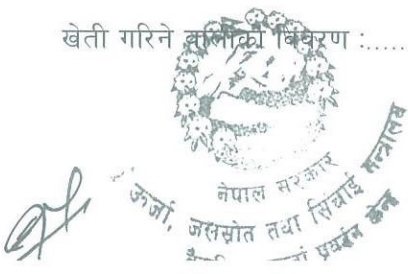 खेती गरिने बालीको विवरण :.....
नेपाल सरकार
ऊर्जा, जलस्रोत तथा सिंचाई मन्त्रालय
प्रवर्द्धन केन्द्र